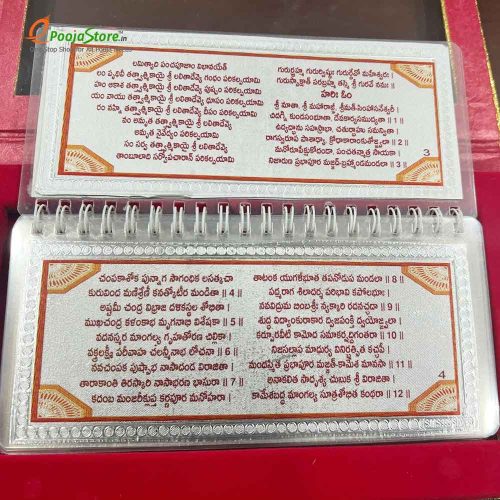 PoojaStore.in
One Stop Shop for All Pooja Needs
లమిత్యాది పంచపూజాం విభావయేత్
లం పృథివీ తత్త్వాత్మికాయై శ్రీ లలితాదేవ్యై గంధం పరికల్పయామి
హం ఆకాశ తత్త్వాత్మికాయై శ్రీ లలితాదేవ్యై పుష్పం పరికల్పయామి
యం వాయు తత్త్వాత్మికాయై శ్రీ లలితాదేవ్యై ధూపం పరికల్పయామి
రం వహ్ని తత్త్వాత్మికాయై శ్రీ లలితాదేవ్యై దీపం పరికల్పయామి
వం అమృత తత్త్వాత్మికాయై శ్రీ లలితాదేవ్యై
అమృత నైవేద్యం పరికల్పయామి
సం సర్వ తత్త్వాత్మికాయై శ్రీ లలితాదేవ్యై
తాంబూలాది సర్వోపచారాన్ పరికల్పయామి
గురుర్బ్రహ్మ గురుర్విష్ణుః గురుర్దేవో మహేశ్వరః |
గురుస్సాక్షాత్ పరబ్రహ్మ తస్మై శ్రీ గురవే నమః ||
హరిః ఓం
శ్రీ మాతా, శ్రీ మహారాజ్ఞీ, శ్రీమత్-సింహాసనేశ్వరీ |
చిదగ్ని కుండసంభూతా, దేవకార్యసముద్యతా || 1 ||
ఉద్యద్భాను సహస్రాభా, చతుర్బాహు సమన్వితా |
రాగస్వరూప పాశాఢ్యా, క్రోధాకారాంకుశోజ్జ్వలా || 2 ||
మనోరూపేక్షుకోదండా, పంచతన్మాత్ర సాయకా |
నిజారుణ ప్రభాపూర మజ్జద్-బ్రహ్మాండమండలా || 3 ||
3
చంపకాశోక పున్నాగ సౌగంధిక లసత్కచా
కురువింద మణిశ్రేణీ కనత్కోటీర మండితా || 4 ||
అష్టమీ చంద్ర విభ్రాజ దళికస్థల శోభితా |
ముఖచంద్ర కళంకాభ మృగనాభి విశేషకా || 5 ||
వదనస్మర మాంగల్య గృహతోరణ చిల్లికా |
వక్త్రలక్ష్మీ పరీవాహ చలన్మీనాభ లోచనా || 6 ||
నవచంపక పుష్పాభ నాసాదండ విరాజితా |
తారాకాంతి తిరస్కారి నాసాభరణ భాసురా || 7 ||
కదంబ మంజరీక్లుప్త కర్ణపూర మనోహరా |
తాటంక యుగళీభూత తపనోడుప మండలా || 8 ||
పద్మరాగ శిలాదర్శ పరిభావి కపోలభూః |
నవవిద్రుమ బింబశ్రీః న్యక్కారి రదనచ్ఛదా || 9 ||
శుద్ధ విద్యాంకురాకార ద్విజపంక్తి ద్వయోజ్జ్వలా |
కర్పూరవీటి కామోద సమాకర్షద్దిగంతరా || 10 ||
నిజసల్లాప మాధుర్య వినిర్భర్త్సిత కచ్ఛపీ |
మందస్మిత ప్రభాపూర మజ్జత్-కామేశ మానసా || 11 ||
అనాకలిత సాదృశ్య చుబుక శ్రీ విరాజితా |
కామేశబద్ధ మాంగల్య సూత్రశోభిత కంధరా || 12 ||
4